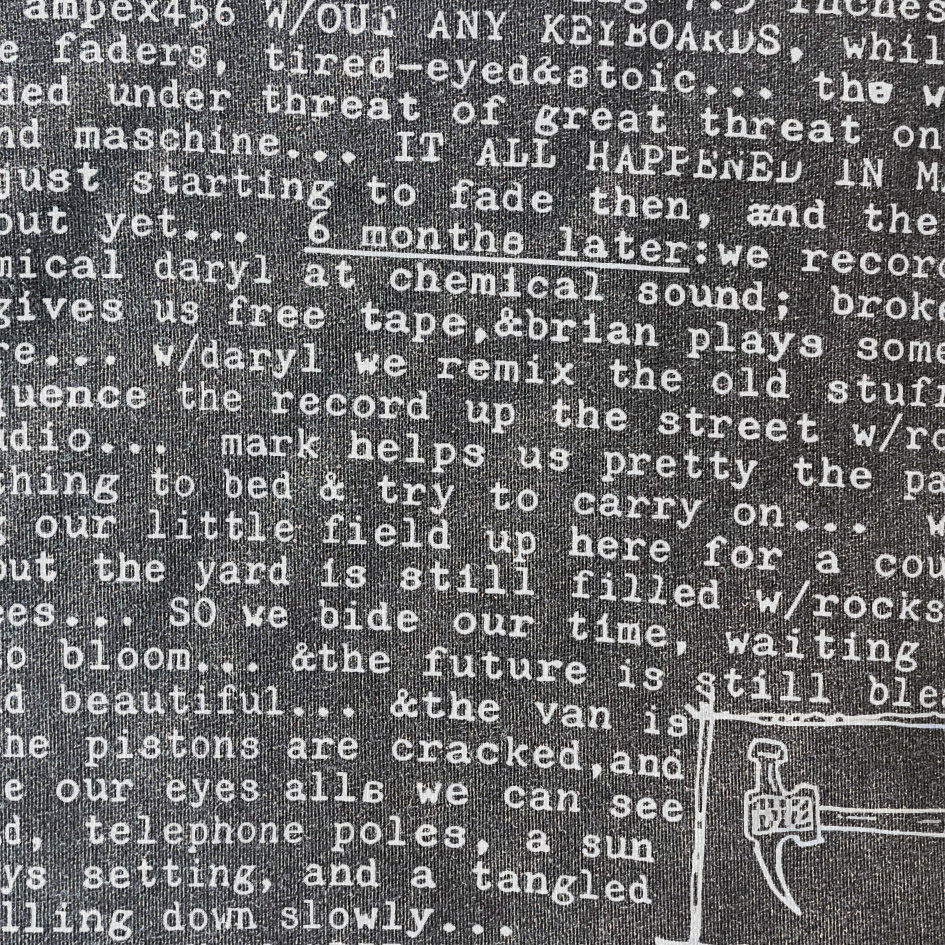 ampex456 W/OUT ANY KEYBOARDS, whil
e faders, tired-eyed&stoic... the w
ded under threat of great threat on
nd maschine... IT ALL HAPPENED IN M
just starting to fade then, and the
out yet... 6 months later:we record
mical daryl at chemical sound; broke
gives us free tape,&brian plays some
re... w/daryl we remix the old stuff
quence the record up the street w/ro
udio... mark helps us pretty the pa
thing to bed & try to carry on... w
g our little field up here for a cou
out the yard is still filled w/rocks
ees... SO we bide our time, waiting
to bloom... &the future is still ble
d beautiful... &the van is
he pistons are cracked,and
e our eyes alls we can see
d, telephone poles, a sun
ys setting, and a tangled
lling down slowly...